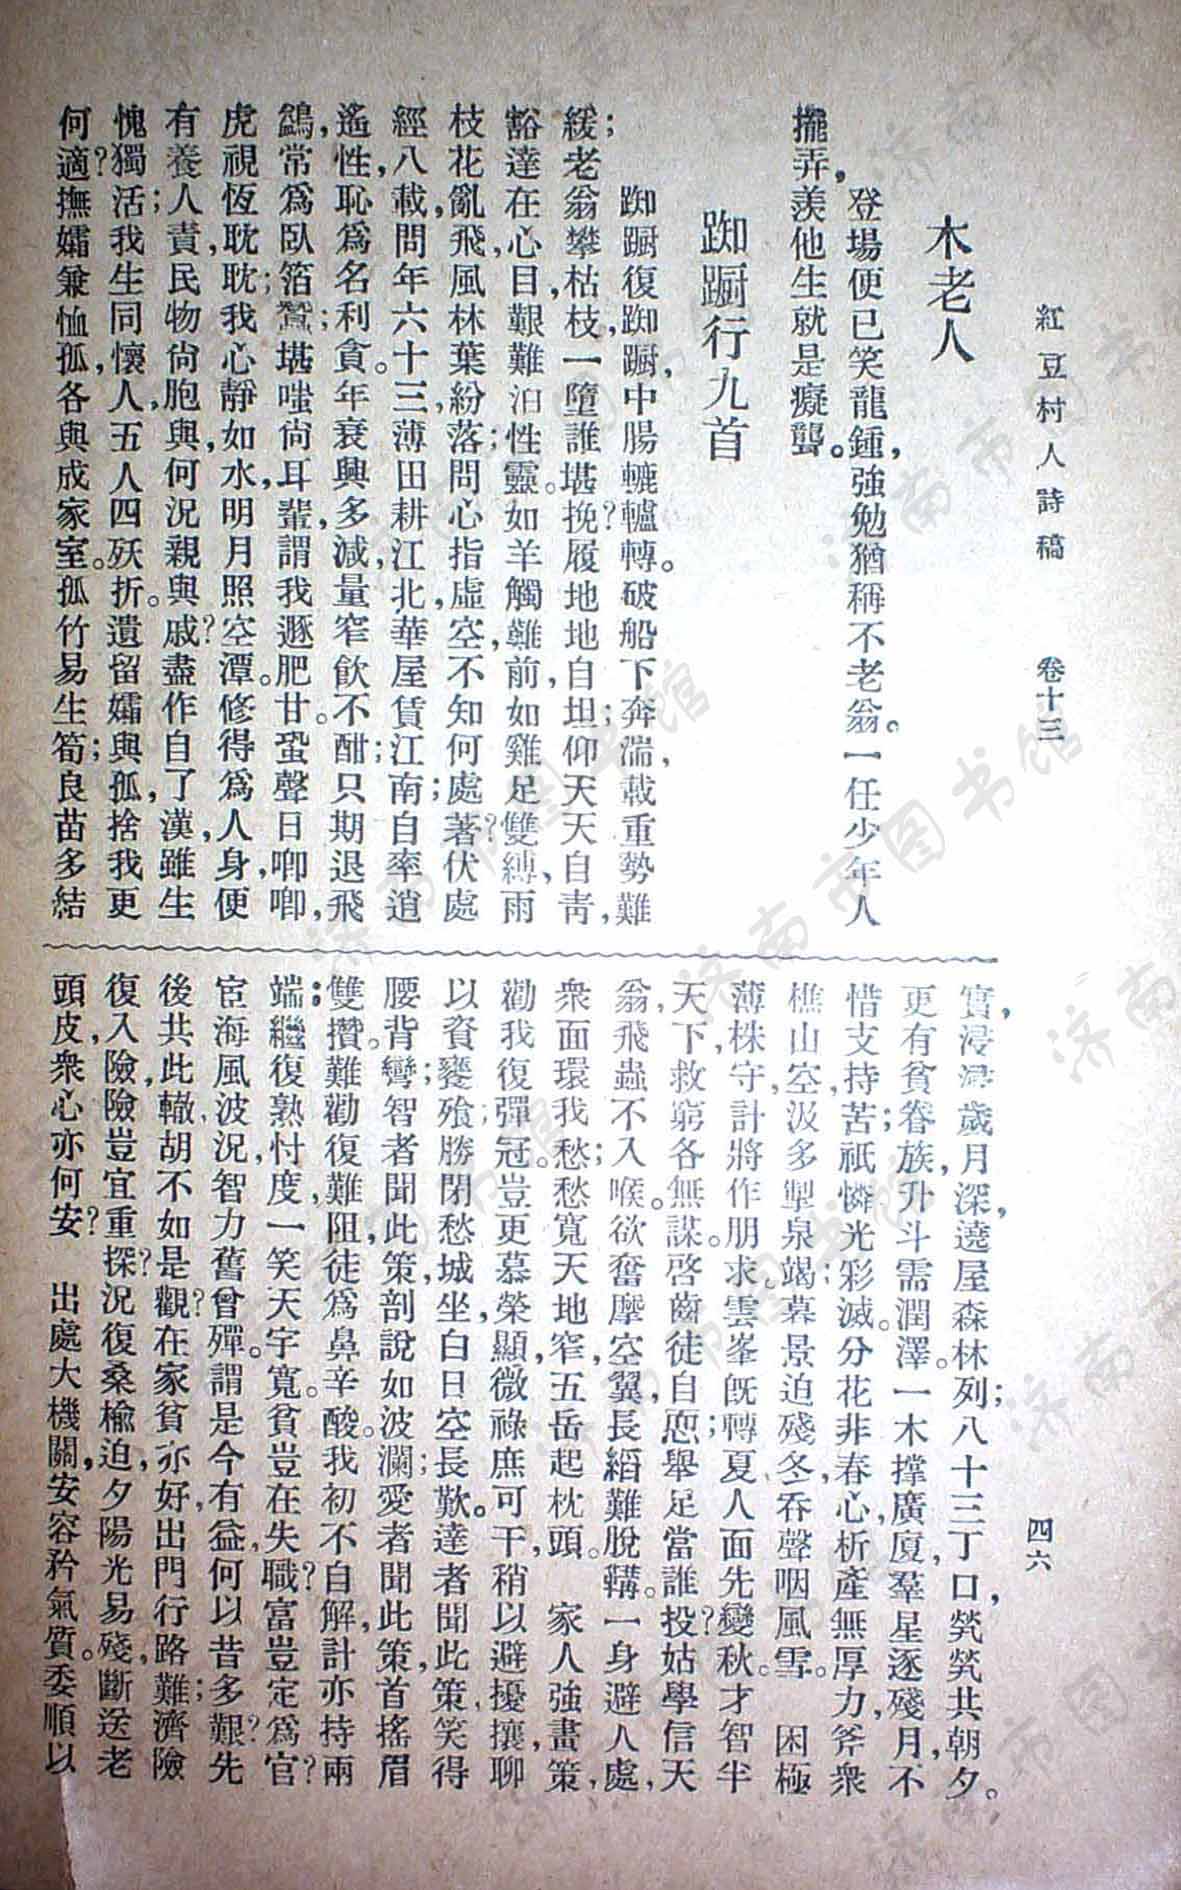 紅豆村人詩稿　卷十三　四六
木老人
登場便已笑龍鍾，強勉猶稱不老翁。一任少年人
攏弄，羨他生就是癡聾。
踟躕行九首
踟躕復踟躕，中腸轆轤轉。破船下奔湍，載重勢難
緩；老翁攀枯枝，一墮誰堪挽？履地地自坦；仰天天自靑，
豁達在心目，艱難汨性靈。如羊觸難前，如雞足雙縛，雨
枝花亂飛，風林葉紛落；問心指虛空，不知何處著？伏處
經八載，問年六十三，薄田耕江北，華屋賃江南；自率逍
遙性，恥爲名利貪。年衰興多減，量窄飲不酣；只期退飛
鷁，常爲臥箔蠶；堪嗤尙耳輩，謂我遯肥甘。蛩聲日喞喞，
虎視恆耽耽；我心靜如水，明月照空潭。修得爲人身，便
有養人責，民物尙胞與，何況親與戚？盡作自了漢，雖生
愧獨活；我生同懷人，五人四殀折。遺留孀與孤，捨我更
何適？撫孀兼恤孤，各與成家室。孤竹易生筍；良苗多結
實，浸淫歲月深，遶屋森林列；八十三丁口，煢煢共朝夕。
更有貧眷族，升斗需潤澤。一木撑廣廈，羣星逐殘月，不
惜支持苦；祇憐光彩滅。分花非春心，析產無厚力，斧衆
樵山空，汲多壍泉竭；暮景迫殘冬，吞聲咽風雪。　困極
薄株守，計將作朋求。雲峯旣轉夏；人面先變秋。才智半
天下，救窮各無謀。啓齒徒自慝，舉足當誰投？姑學信天
翁，飛蟲不入喉。欲奮摩空翼，長縚難脫韝。一身避人處，
衆面環我愁；愁寬天地窄，五岳起枕頭。　家人強畫策，
勸我復彈冠。豈更慕榮顯，微祿庶可干，稍以避擾攘，聊
以資饔飧；勝閉愁城坐，白日空長歎。達者聞此策，笑得
腰背彎；智者聞此策，剖說如波瀾；愛者聞此策，首搖眉
雙攢。難勸復難阻，徒爲鼻辛酸。我初不自解，計亦持兩
端；繼復熟忖度，一笑天宇寬。貧豈在失職？富豈定爲官？
宦海風波況，智力舊曾殫。謂是今有益，何以昔多艱？先
後共此轍，胡不如是觀？在家貧亦好，出門行路難；濟險
復入險，險豈宜重探？況復桑榆迫，夕陽光易殘，斷送老
頭皮，衆心亦何安？　出處大機關，安容矜氣質。委順以